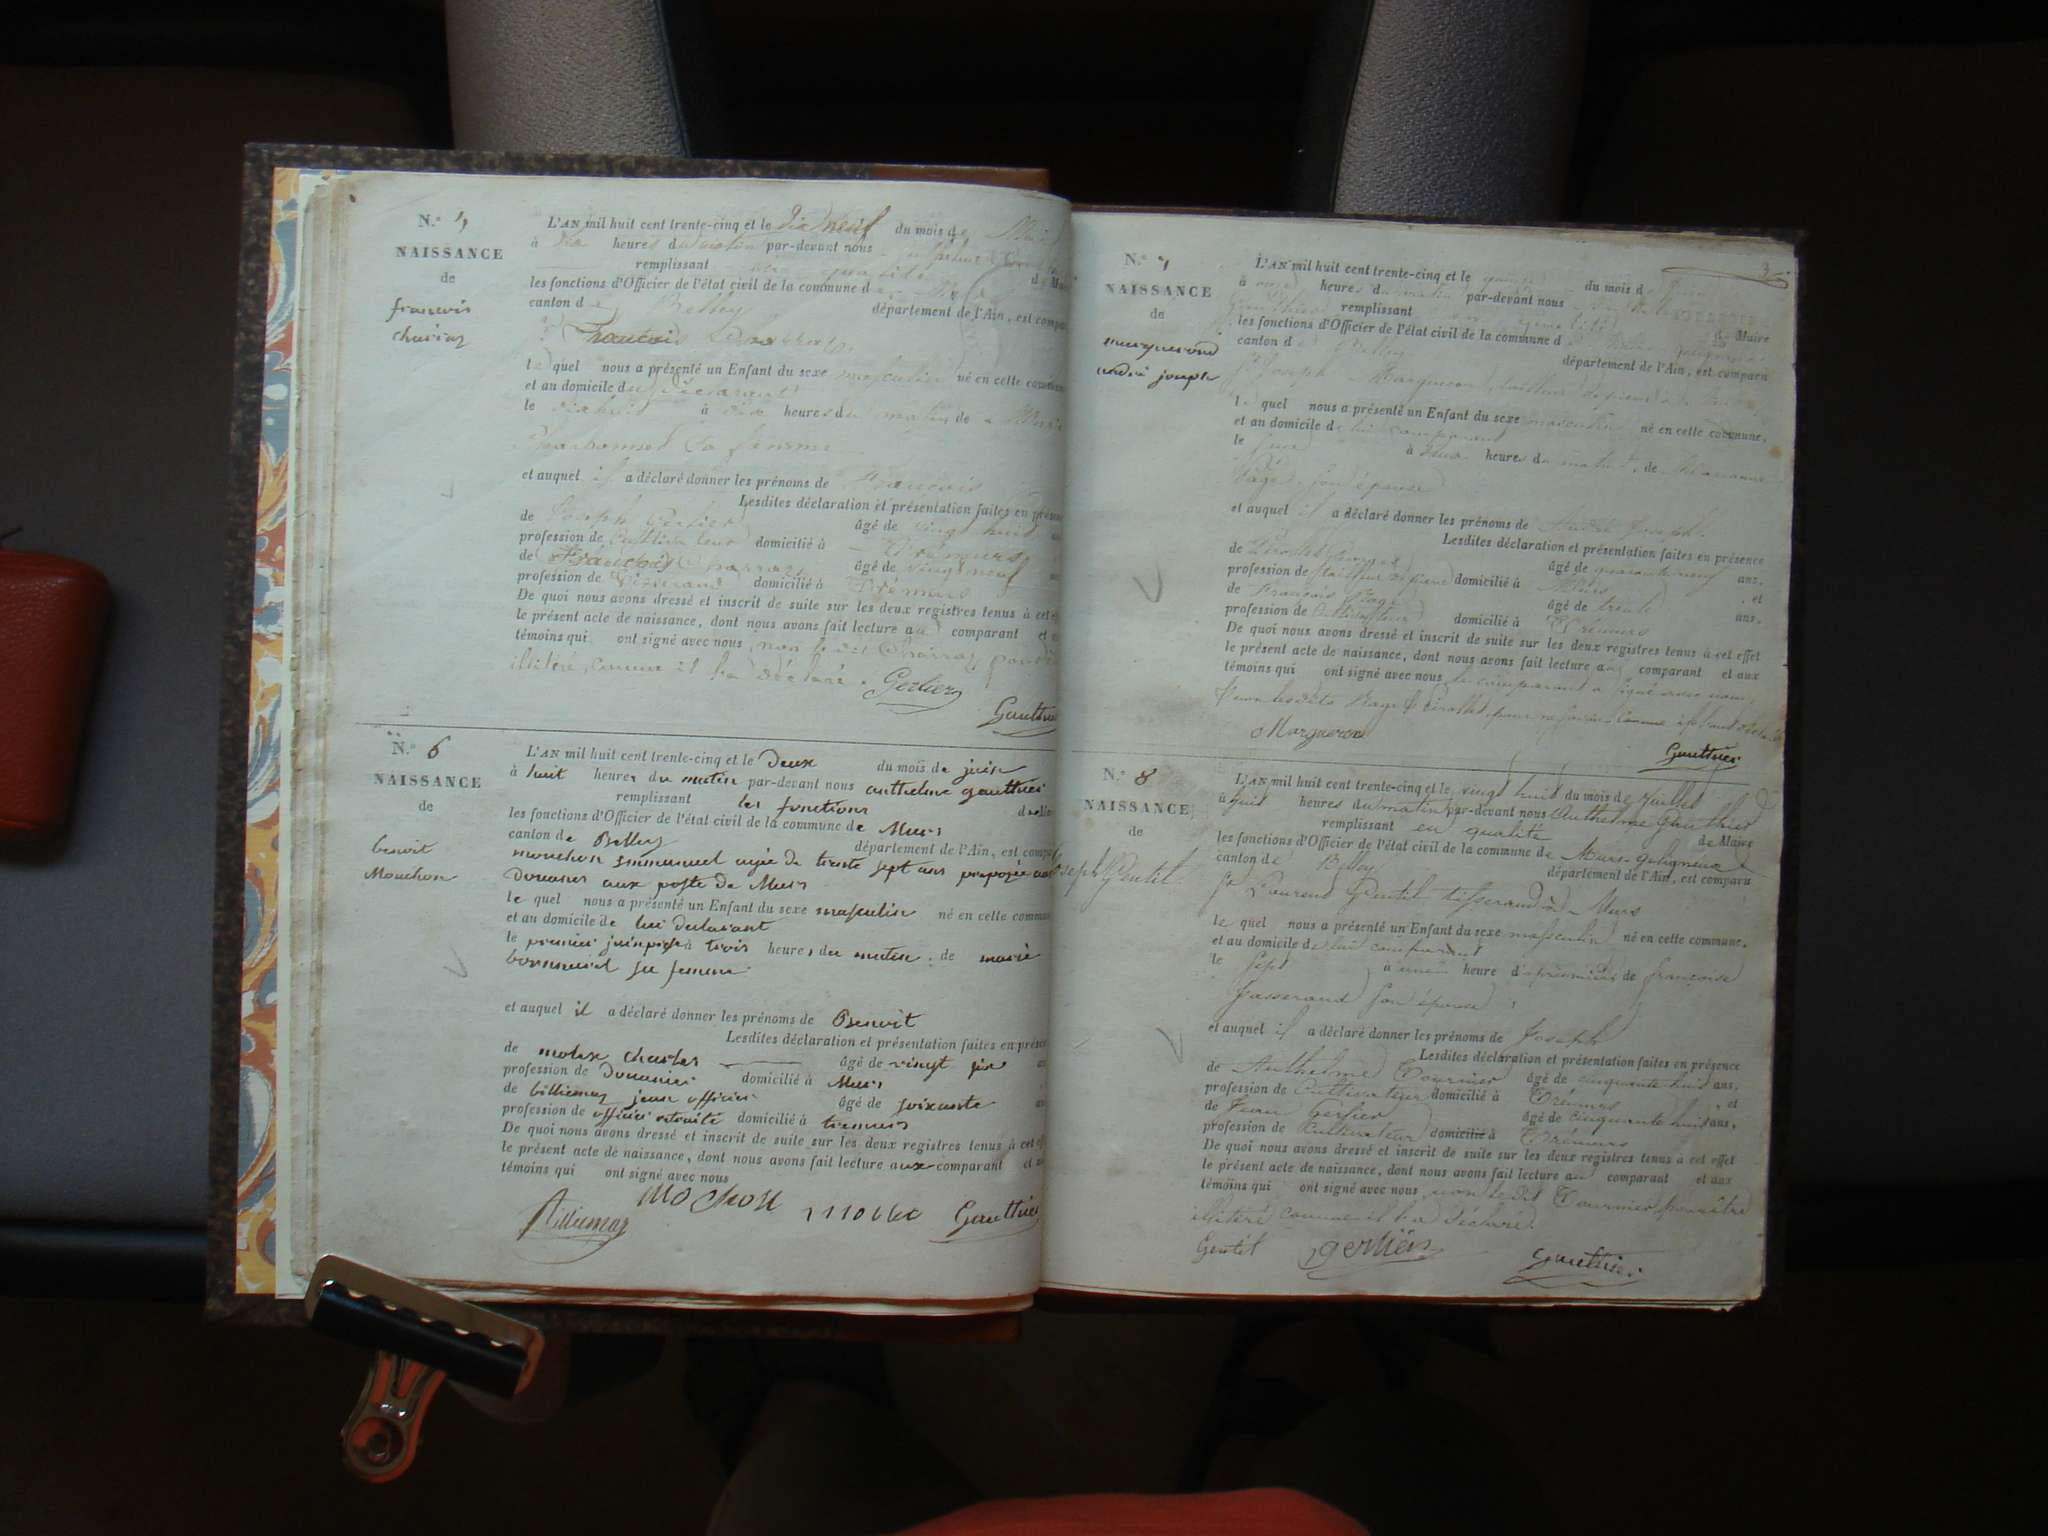 NAISSANCE
de
francois
L'AN mil huit cent trente-cinq et le Dix neuf du mois de Mai
à dix heures du matin par-devant nous
remplissant en qualité de Maire
les fonctions d'Officier de l'état civil de la commune de
canton de Belley département de l'Ain, est
francois
le quel nous a présenté un Enfant du sexe masculin né en cette
et au domicile du déclarant
le dixhuit à dix heures du matin de Marie
Charbonnet Sa femme
et auquel il a déclaré donner les prénoms de francois
Lesdites déclaration et présentation faites en
de Joseph Gerlier âgé de vingt huit
profession de Cultivateur domicilié à Trémurs
de francois Charraz âgé de vingt neuf
profession de Tisserand domicilié à Trémurs
De quoi nous avons dressé et inscrit de suite sur les deux registres tenus à cet
le présent acte de naissance, dont nous avons fait lecture au comparant et
témoins qui ont signé avec nous, non le dit Charraz pour
illitéré, comme il l'a déclaré.
Gerlier
Gauthier
N.° 6
NAISSANCE
de
benoit
Mouchon
L'AN mil huit cent trente-cinq et le Deux du mois de juin
à huit heures du matin par-devant nous anthelme gauthier
remplissant les fonctions
les fonctions d'Officier de l'état civil de la commune de Murs
canton de Belley département de l'Ain, est
mouchon emmanuel agée de trente sept ans
Douanes aux poste de Murs
le quel nous a présenté un Enfant du sexe masculin né en cette
et au domicile de lui declarant
le premier juin à trois heures du matin de marie
sa femme
et auquel il a déclaré donner les prénoms de Benoit
Lesdites déclaration et présentation faites en
de molex charles âgé de vingt six
profession de Douanier domicilié à Murs
de billiemaz jean officier âgé de soixante
profession de officier retraité domicilié à tremurs
De quoi nous avons dressé et inscrit de suite sur les deux registres tenus à cet
le présent acte de naissance, dont nous avons fait lecture aux comparant et
témoins qui ont signé avec nous
Billiemaz mochon Gauthier
3
N.° 7
NAISSANCE
de
marguerond
andré joseph
L'AN mil huit cent trente-cinq et le quinze du mois de
à onze heures du matin par-devant nous
Gauthier remplissant en qualité de Maire
les fonctions d'Officier de l'état civil de la commune de
canton de Belley département de l'Ain, est comparu
Joseph Margueron, tailleur de pierre
le quel nous a présenté un Enfant du sexe masculin né en cette commune,
et au domicile de lui comparant
le à deux heures du matin, de Marianne
Rage son épouse
et auquel il a déclaré donner les prénoms de André Joseph.
Lesdites déclaration et présentation faites en présence
de âgé de quarante neuf ans,
profession de tailleur de pierre domicilié à Murs, et
de François Rage âgé de trente ans,
profession de Cultivateur domicilié à Trémurs
De quoi nous avons dressé et inscrit de suite sur les deux registres tenus à cet effet
le présent acte de naissance, dont nous avons fait lecture aux comparant et aux
témoins qui ont signé avec nous, le comparant a signé avec nous,
Margueron
Gauthier
N.° 8
NAISSANCE
de
Joseph Gentil
L'AN mil huit cent trente-cinq et le vingt huit du mois de Juillet
à huit heures du matin par-devant nous Anthelme Gauthier
remplissant en qualité de Maire
les fonctions d'Officier de l'état civil de la commune de Murs-Gelignieux
canton de Belley département de l'Ain, est comparu
Sr Laurent Gentil tisserand à Murs
le quel nous a présenté un Enfant du sexe masculin né en cette commune,
et au domicile de lui comparant
le Sept à une heure de françoise
Jasserand son épouse
et auquel il a déclaré donner les prénoms de Joseph
Lesdites déclaration et présentation faites en présence
de Anthelme Tournier âgé de cinquante huit ans,
profession de Cultivateur domicilié à Trémurs, et
de Jean Gerlier âgé de cinquante huit ans,
profession de Cultivateur domicilié à Trémurs
De quoi nous avons dressé et inscrit de suite sur les deux registres tenus à cet effet
le présent acte de naissance, dont nous avons fait lecture au comparant et aux
témoins qui ont signé avec nous, non le dit Tournier pour être
illitéré comme il l'a déclaré.
Gentil gerlier Gauthier